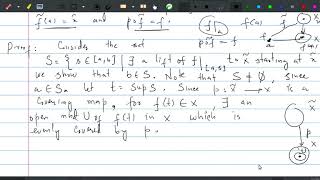 f̃(a) = x̃ and p∘f̃ = f.
f|ₐ f(a) x̃
p∘f̃ = f
a f f(a) x
Proof: Consider the set
S = { s ∈ [a,b] | ∃ a lift of f|[a,s] to X̃ starting at x̃
we show that b ∈ S. Note that S ≠ ∅, since
a ∈ S. Let t = Sup S. Since p: X̃ → X is a
Covering map, for f(t) ∈ X, ∃ an
open nbd U of f(t) in X which is
evenly covered by p.
X̃
p
X